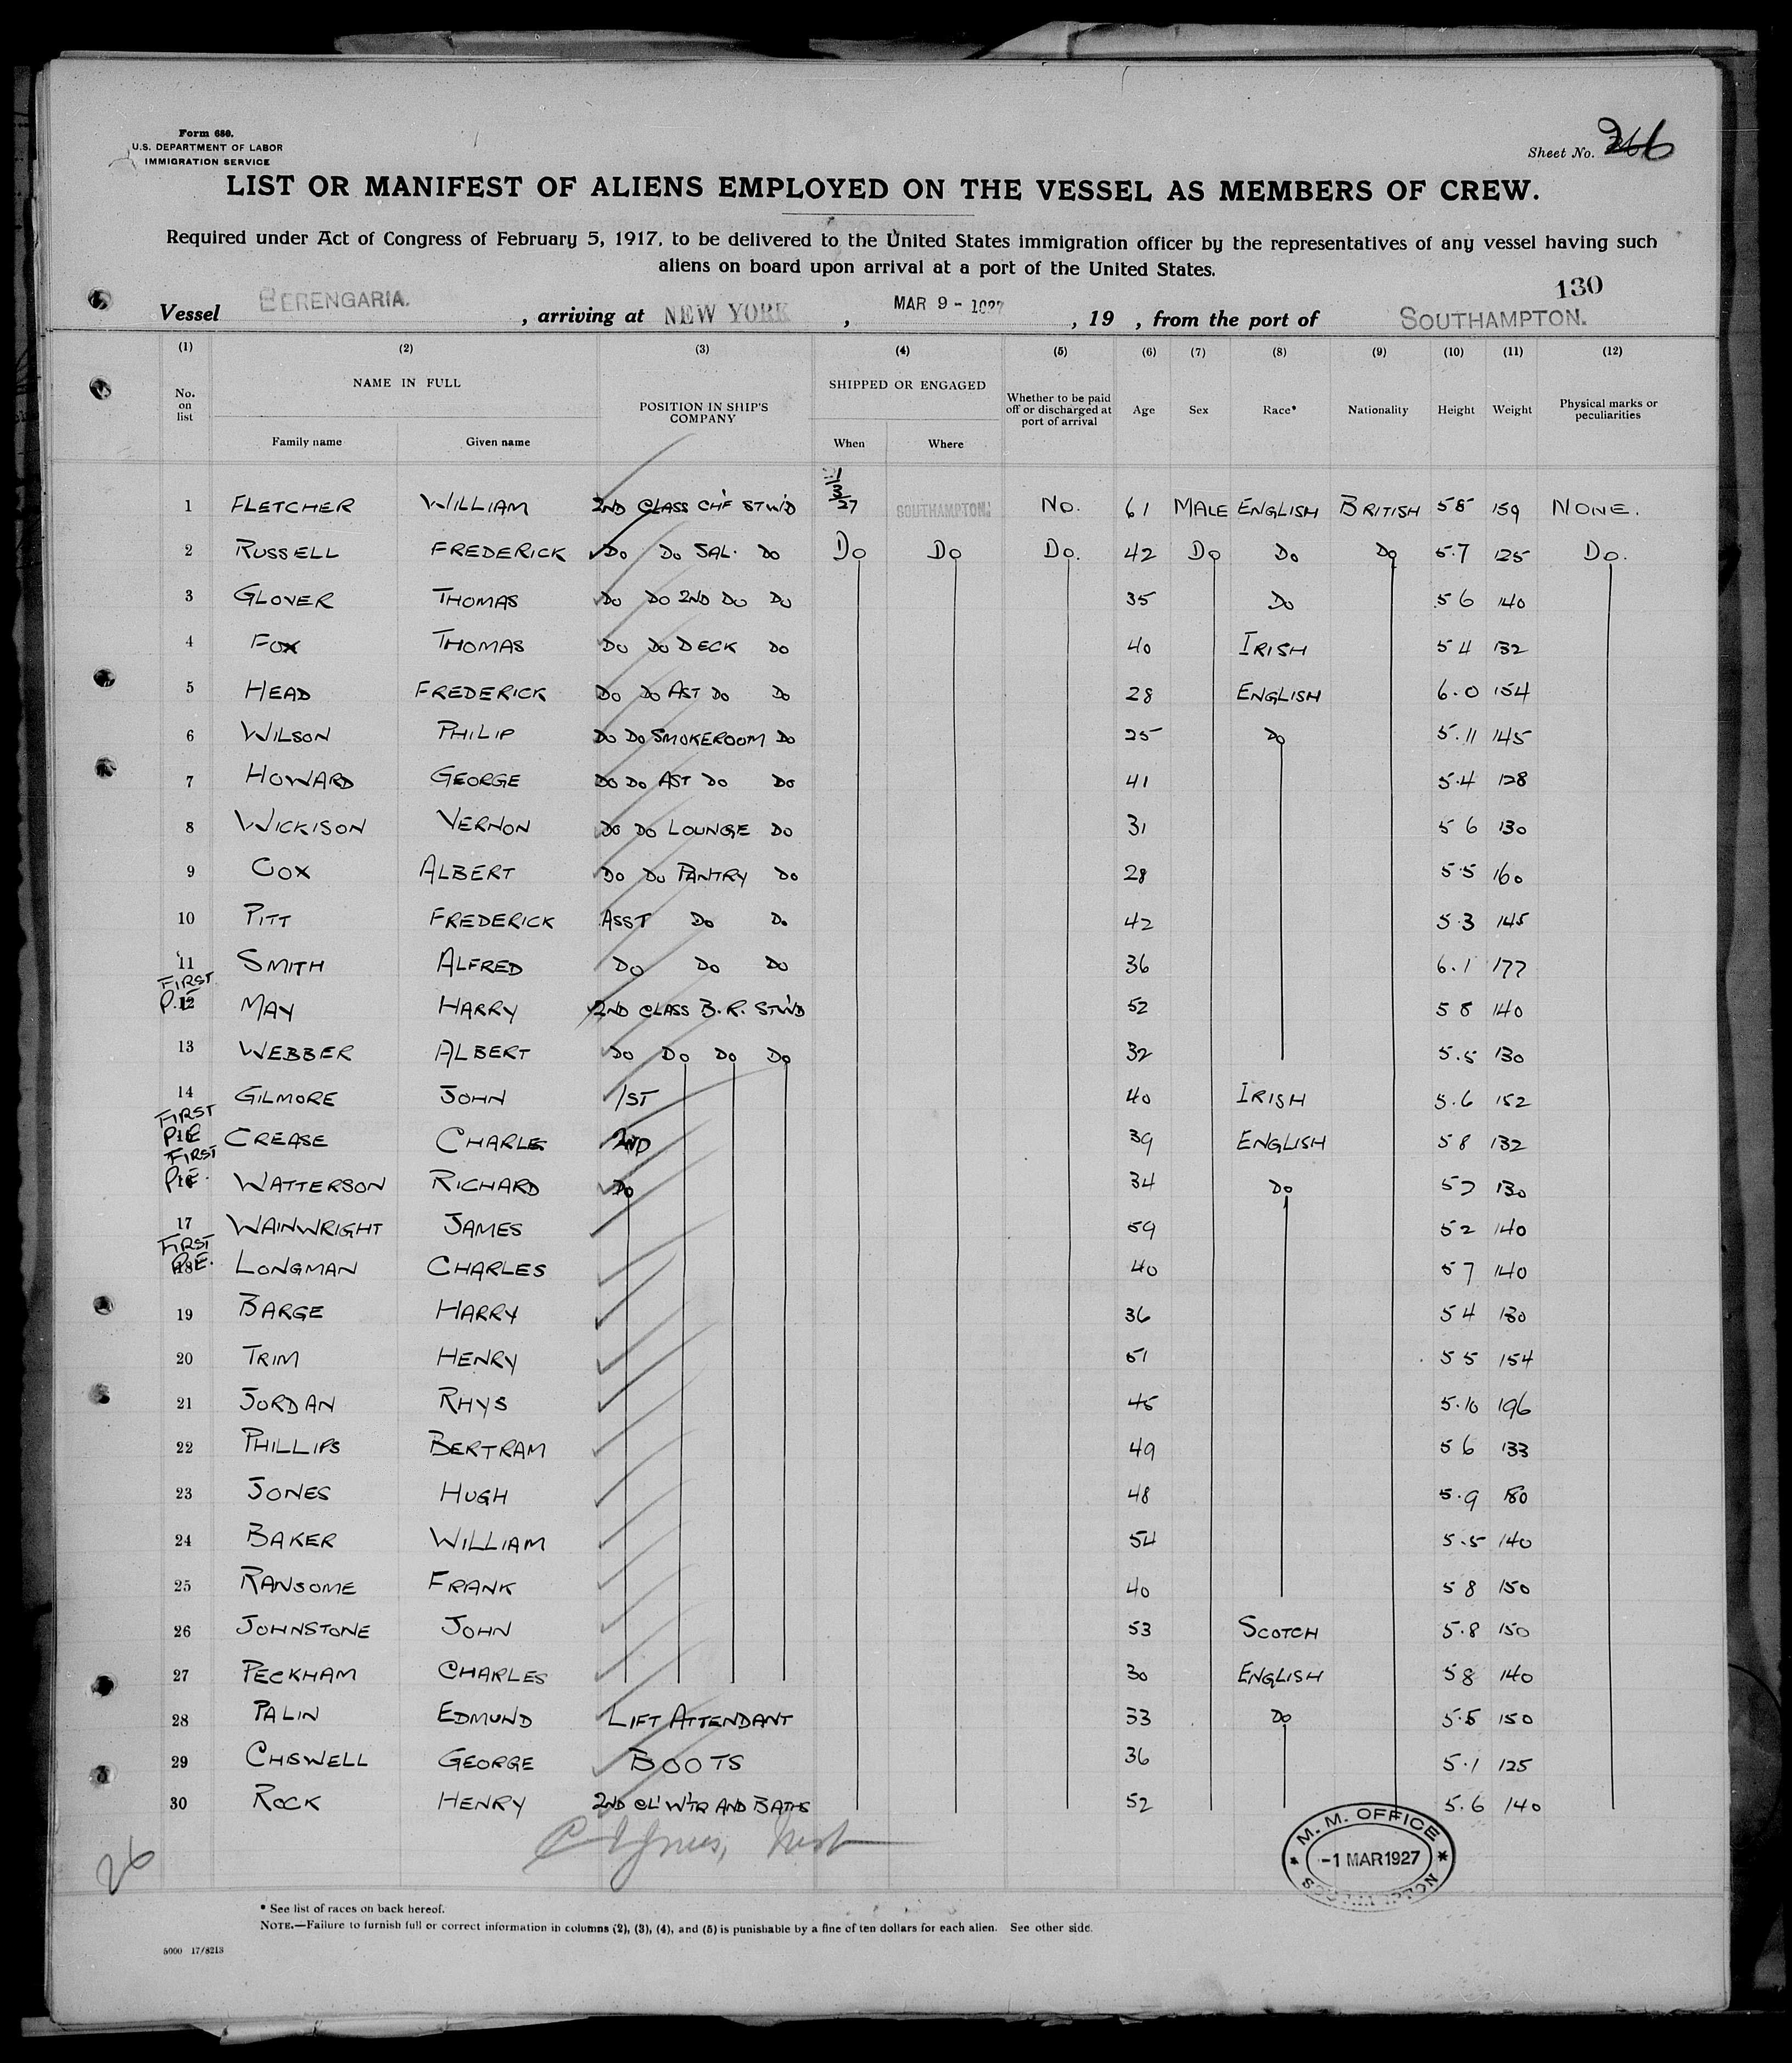 Form 680.
U.S. DEPARTMENT OF LABOR
IMMIGRATION SERVICE
Sheet No. 266
LIST OR MANIFEST OF ALIENS EMPLOYED ON THE VESSEL AS MEMBERS OF CREW.
Required under Act of Congress of February 5, 1917, to be delivered to the United States immigration officer by the representatives of any vessel having such
aliens on board upon arrival at a port of the United States.
130
Vessel BERENGARIA. , arriving at NEW YORK , MAR 9 - 1927 , 19 , from the port of SOUTHAMPTON.
(1) (2) (3) (4) (5) (6) (7) (8) (9) (10) (11) (12)
No. on list NAME IN FULL Family name Given name POSITION IN SHIP'S COMPANY SHIPPED OR ENGAGED When Where Whether to be paid off or discharged at port of arrival Age Sex Race* Nationality Height Weight Physical marks or peculiarities
1 FLETCHER WILLIAM 2ND CLASS CH'F STW'D 27 SOUTHAMPTON. NO. 61 MALE ENGLISH BRITISH 5 8 159 NONE.
2 RUSSELL FREDERICK DO DO SAL. DO DO DO DO. 42 DO DO DO 5.7 125 DO.
3 GLOVER THOMAS DO DO 2ND DO DO 35 DO 5 6 140
4 FOX THOMAS DO DO DECK DO 40 IRISH 5 4 132
5 HEAD FREDERICK DO DO AST DO DO 28 ENGLISH 6.0 154
6 WILSON PHILIP DO DO SMOKEROOM DO 25 DO 5.11 145
7 HOWARD GEORGE DO DO AST DO DO 41 5.4 128
8 WICKISON VERNON DO DO LOUNGE DO 31 5 6 130
9 COX ALBERT DO DO PANTRY DO 28 5.5 160
10 PITT FREDERICK ASST DO DO 42 5.3 145
11 SMITH ALFRED DO DO DO 36 6.1 177
FIRST
P.E 12 MAY HARRY 2ND CLASS B.R. STW'D 52 5 8 140
13 WEBBER ALBERT DO DO DO DO 32 5.5 130
14 GILMORE JOHN 1ST 40 IRISH 5.6 152
FIRST
P.E CREASE CHARLES 2ND 39 ENGLISH 5 8 132
FIRST
P.E. WATTERSON RICHARD DO 34 DO 5 7 130
17 WAINWRIGHT JAMES 59 5 2 140
FIRST
P.E. 18 LONGMAN CHARLES 40 5 7 140
19 BARGE HARRY 36 5 4 130
20 TRIM HENRY 51 5 5 154
21 JORDAN RHYS 45 5.10 196
22 PHILLIPS BERTRAM 49 5 6 133
23 JONES HUGH 48 5.9 180
24 BAKER WILLIAM 54 5.5 140
25 RANSOME FRANK 40 5 8 150
26 JOHNSTONE JOHN 53 SCOTCH 5.8 150
27 PECKHAM CHARLES 30 ENGLISH 5 8 140
28 PALIN EDMUND LIFT ATTENDANT 33 DO 5.5 150
29 CHISWELL GEORGE BOOTS 36 5.1 125
30 ROCK HENRY 2ND CL' W'TR AND BATHS 52 5.6 140
M. M. OFFICE
-1 MAR 1927
SOUTHAMPTON
26
* See list of races on back hereof.
NOTE.—Failure to furnish full or correct information in columns (2), (3), (4), and (5) is punishable by a fine of ten dollars for each alien. See other side.
5000 17/8213